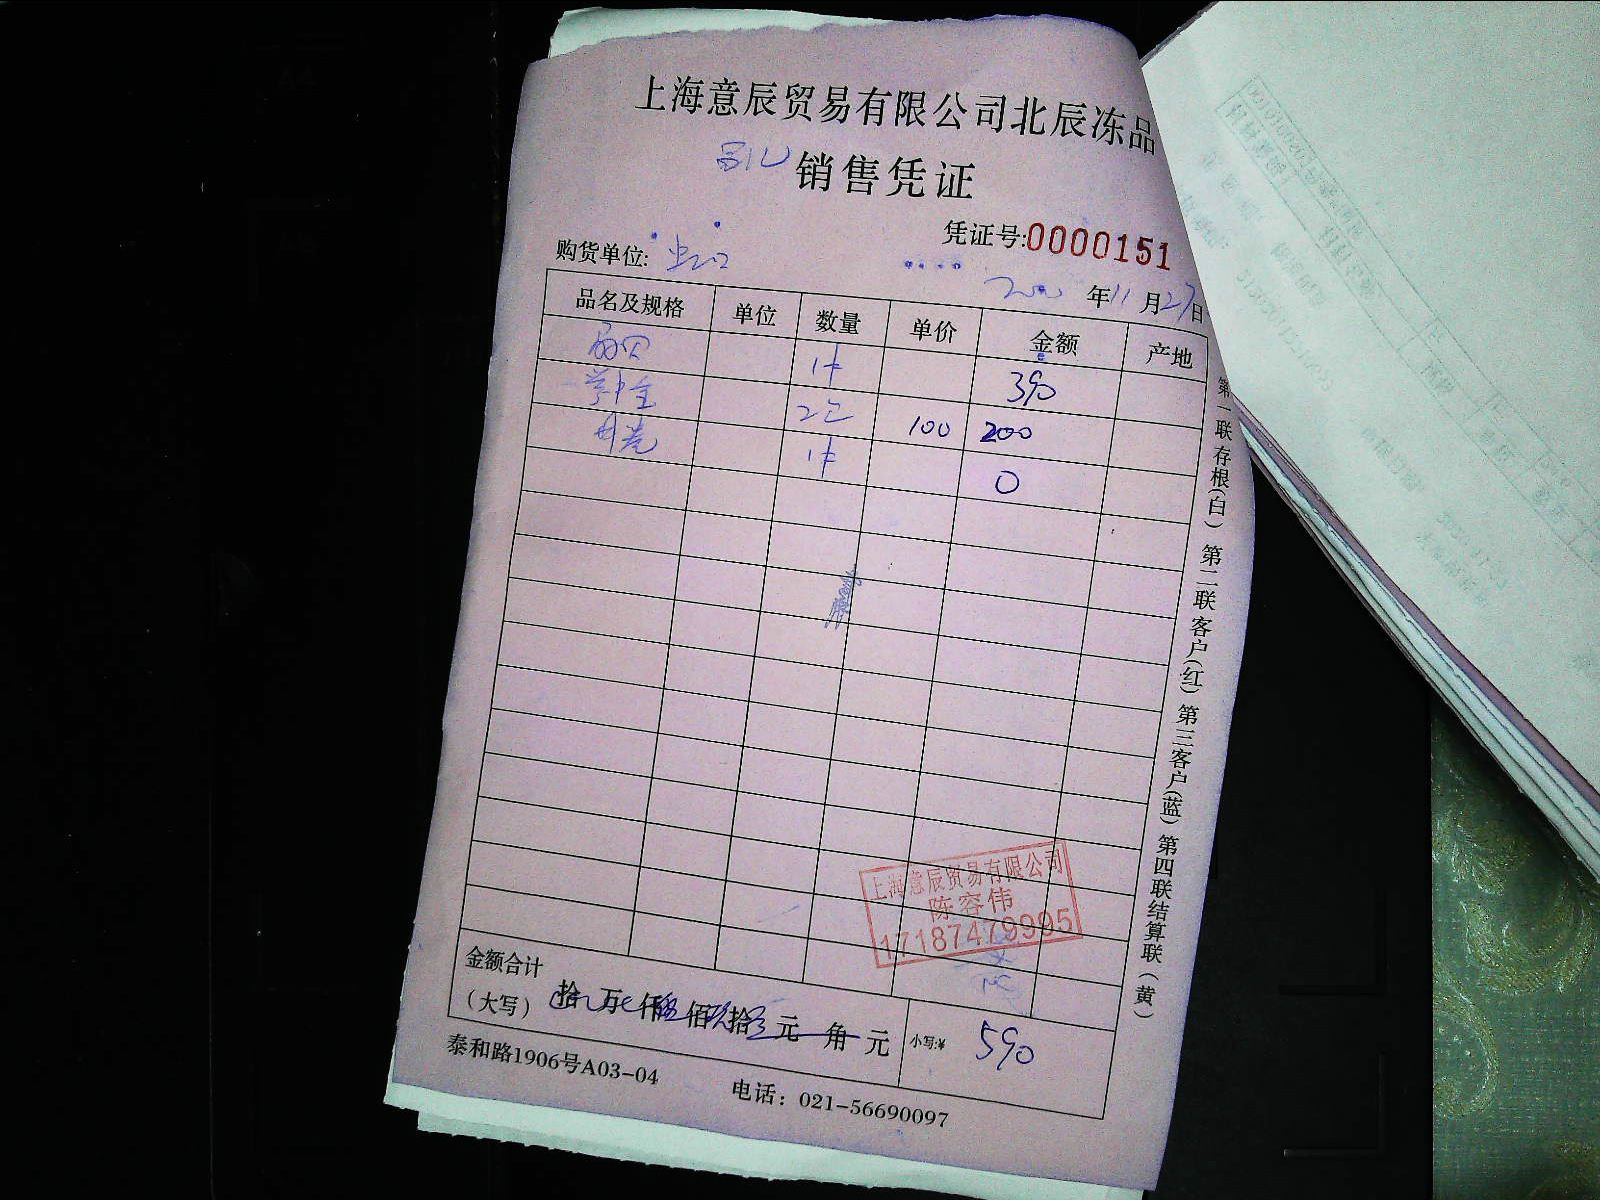 上海意辰贸易有限公司北辰冻品
销售凭证
凭证号:0000151
购货单位:
年11月27日
品名及规格 单位 数量 单价 金额 产地
扇贝 1件 390
2 100 200
1件 0
上海意辰贸易有限公司
陈容伟
17187479995
金额合计
(大写) 拾 万 仟 佰玖拾 元 角 元 小写:¥ 590
泰和路1906号A03-04 电话：021-56690097
第一联存根(白) 第二联客户(红) 第三客户(蓝) 第四联结算联(黄)